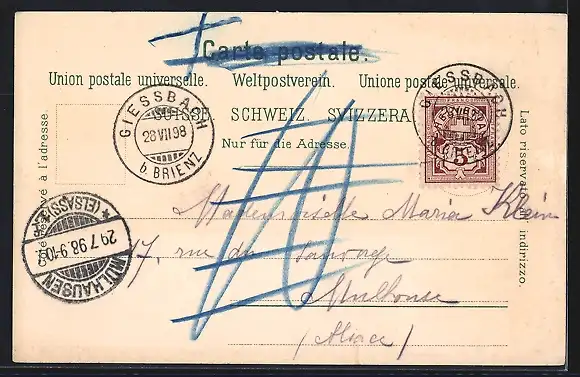 Carte postale.
Union postale universelle. Weltpostverein. Unione postale universale.
SUISSE. SCHWEIZ. SVIZZERA.
Nur für die Adresse.
GIESSBACH
28 VII 98
b. BRIENZ
GIESSBACH
5
Côté réservé à l'adresse.
Lato riservato all' indirizzo.
MÜLHAUSEN
29.7.98.9-10
(ELSASS)
Mademoiselle Maria Klein
17, rue du Sauvage
Mulhouse
(Alsace)